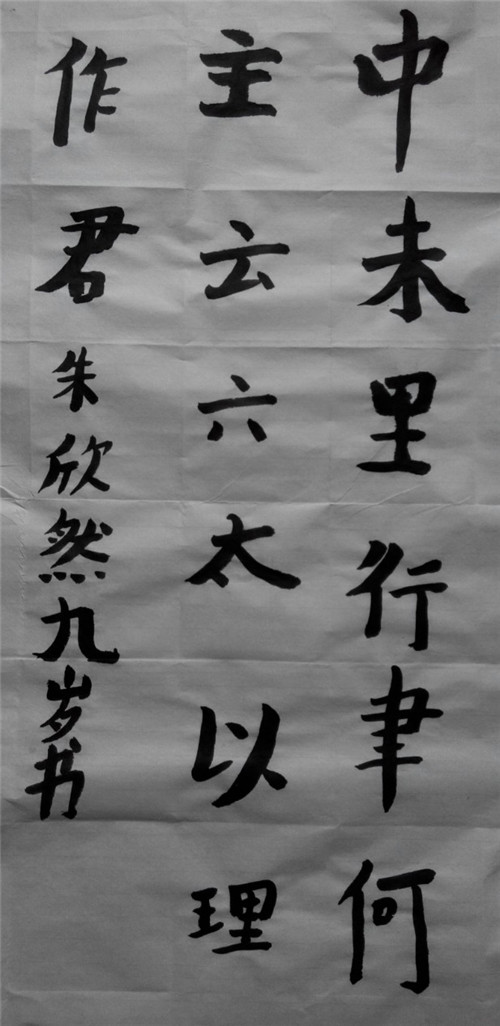 中未里行聿何
主云六太以理
作君朱欣然九岁书